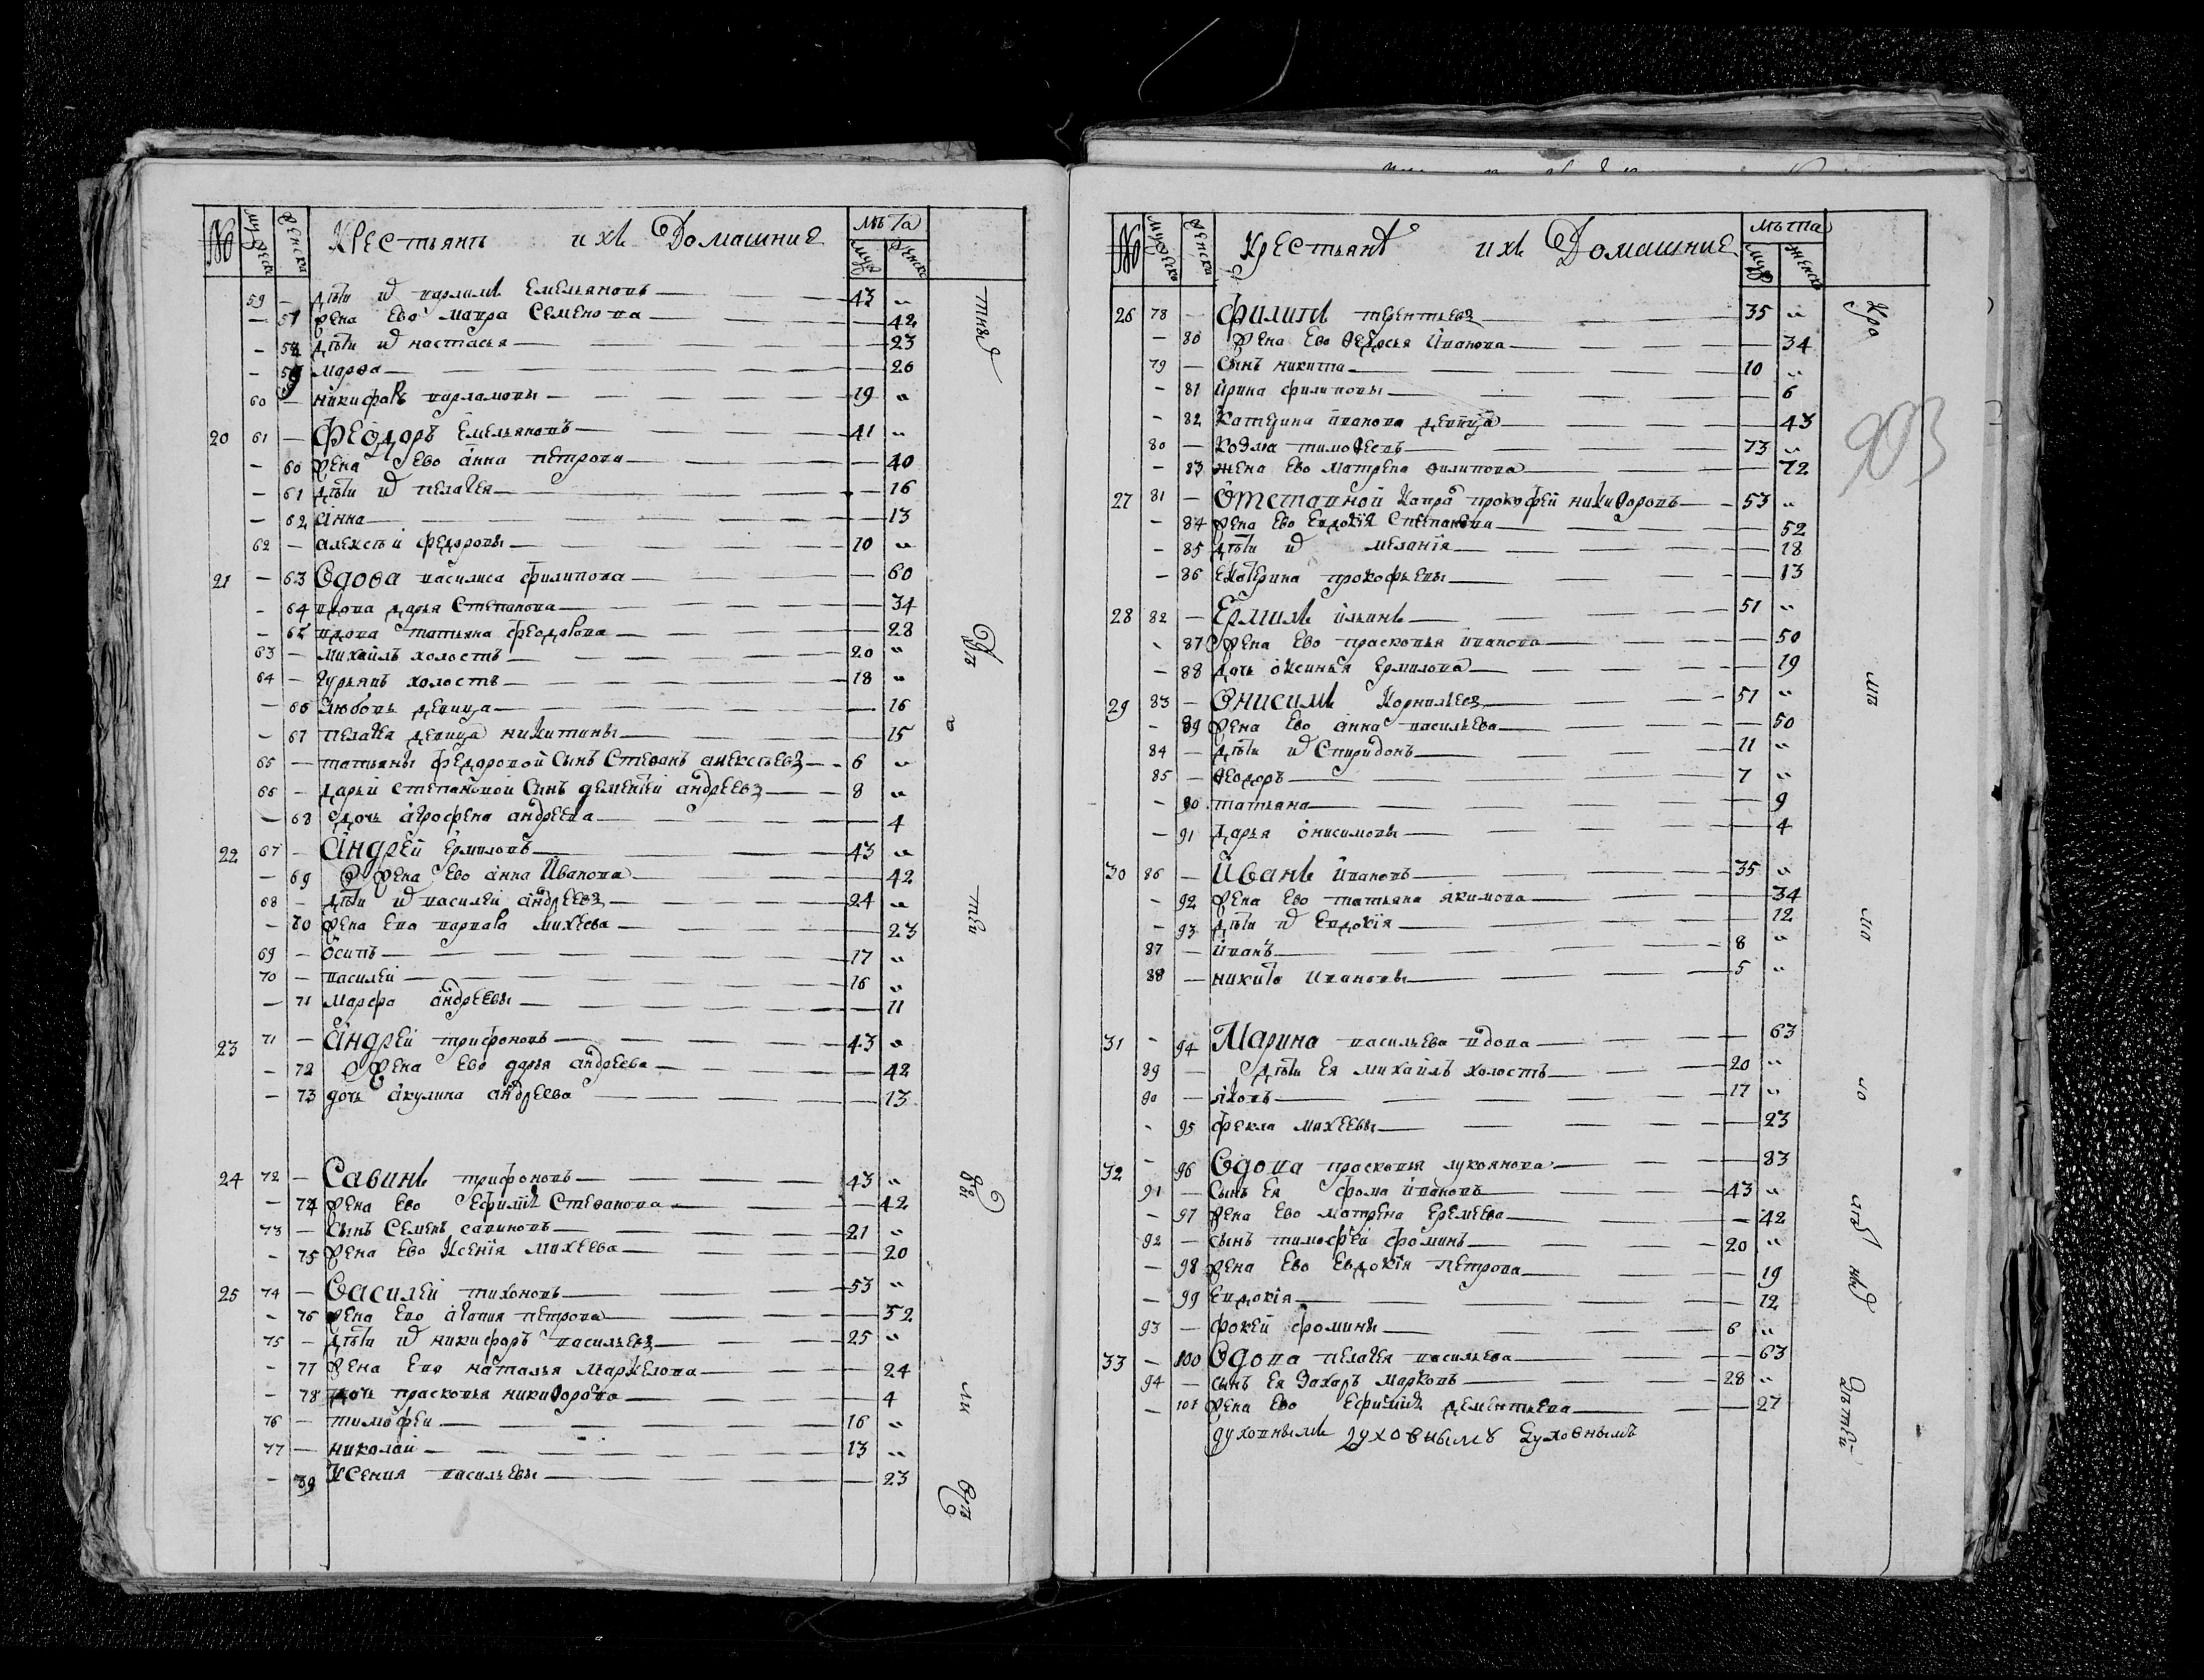 № мужеск женски Крестьянъ ихъ Домашние лѣта муж женск
59 — дѣти ѿ варламъ Емельяновъ 43 „
— 57 жена Ево мавра Семенова — 42
— 58 дѣти ѿ настасья — 23
— 59 марѳа — 20
60 — никифоръ варламовы 19 „
20 61 — Феодоръ Емельяновъ 41 „
— 60 жена Ево анна петрова — 40
— 61 дѣти ѿ пелагея — 16
— 62 анна — 13
62 — алексѣй федоровы 10 „
21 — 63 Вдова василиса филипова — 60
— 64 вдова дарья Степанова — 34
— 65 вдова татьяна феодорова — 28
63 — михайлъ холостъ 20 „
64 — гурьянъ холостъ 18 „
— 66 любовь девица — 16
— 67 пелагея девица никитины — 15
65 — татьяны федоровой сынъ Стеѳанъ алексѣевъ 6 „
66 — дарьи степановой Сынъ дементей андреевъ 8 „
— 68 дочь агрофена андреева — 4
22 67 — Андрей ермиловъ 43 „
— 69 жена Ево анна Иванова — 42
68 — дѣти ѿ василей андреевъ 24 „
— 70 жена Ево варвара михеева — 23
69 — осипъ 17 „
70 — василей 16 „
— 71 марфа андреевы — 11
23 71 — Андрей трифоновъ 43 „
— 72 жена Ево дарья андреева — 42
— 73 дочь акулина андреева — 13
24 72 — Савинъ трифоновъ 43 „
— 74 жена Ево Ефимія Стеѳанова — 42
73 — Сынъ Семенъ савиновъ 21 „
— 75 жена Ево Ксенія михеева — 20
25 74 — Василей тихоновъ 53 „
— 76 жена Ево агапия петрова — 52
75 — дѣти ѿ никифоръ васильевъ 25 „
— 77 жена Ево наталья маркелова — 24
— 78 дочь прасковья никиѳорова — 4
76 — тимофей 16 „
77 — николай 13 „
— 79 Ксения васильевы — 23
№ мужеск женски Крестьянъ ихъ Домашние лѣта муж женск
903
26 78 — Филипъ терентьевъ 35 „
— 80 жена Ево ѳедосья Иванова — 34
79 — Сынъ никита 10 „
— 81 ирина филиповы — 6
— 82 катерина иванова девица — 43
80 — Козма тимоѳеевъ 73 „
— 83 жена Ево матрена ѳилипова — 72
27 81 — Отставной прокофей никиѳоровъ 53 „
— 84 жена Ево Евдокія Степанова — 52
— 85 дѣти ѿ меланія — 18
— 86 екатерина прокофьевы — 13
28 82 — Ермилъ ильинъ 51 „
— 87 жена Ево прасковья иванова — 50
— 88 дочь оксинья ермилова — 19
29 83 — Онисимъ Корнильевъ 51 „
— 89 жена Ево анна васильева — 50
84 — дѣти ѿ Спиридонъ 11 „
85 — ѳеодоръ 7 „
— 90 татьяна — 9
— 91 дарья онисимовы — 4
30 86 — Иванъ ивановъ 35 „
— 92 жена Ево татьяна якимова — 34
— 93 дѣти ѿ Евдокія — 12
87 — иванъ 8 „
88 — никита ивановы 5 „
31 — 94 Марина васильева вдова — 63
89 — дѣти Ея михайлъ холостъ 20 „
90 — яковъ 17 „
— 95 фекла михеевы — 23
32 — 96 Вдова прасковья лукоянова — 83
91 — Сынъ Ея фома ивановъ 43 „
— 97 жена Ево матрена еремеева — 42
92 — сынъ тимофей фоминъ 20 „
— 98 жена Ево Евдокія петрова — 19
— 99 Евдокія — 12
93 — фокей фомины 6 „
33 — 100 Вдова пелагея васильева — 63
94 — сынъ Ея Захаръ марковъ 28 „
— 101 жена Ево Ефимія дементьева — 27
духовнымъ духовнымъ духовнымъ